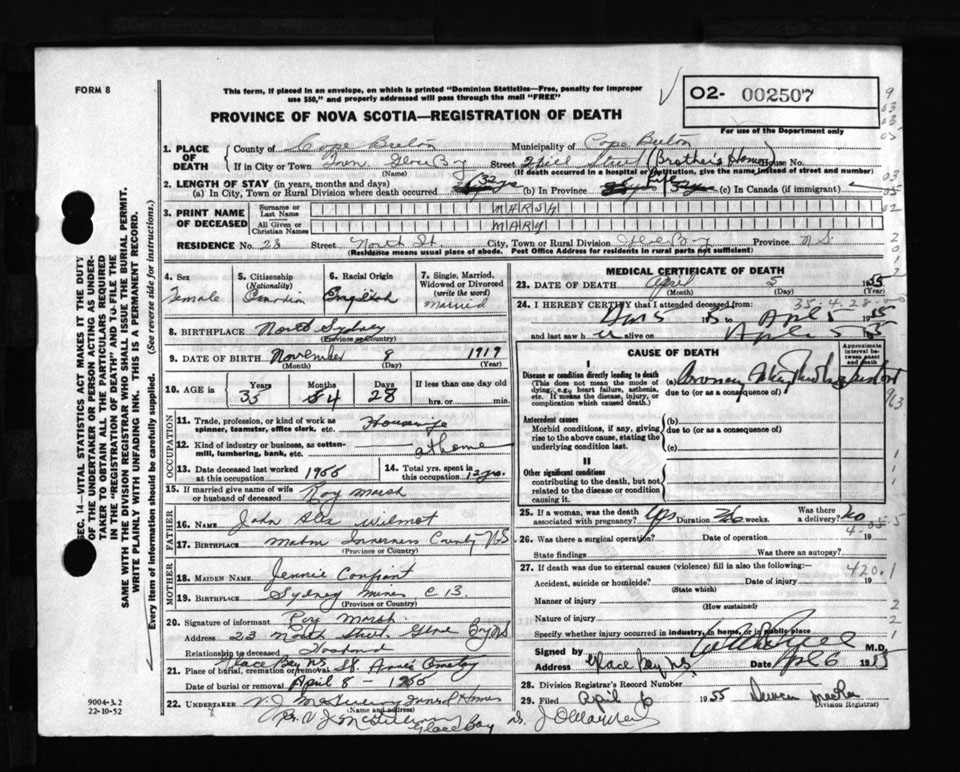 FORM 8
This form, if placed in an envelope, on which is printed "Dominion Statistics—Free, penalty for improper
use $50," and properly addressed will pass through the mail "FREE"
PROVINCE OF NOVA SCOTIA—REGISTRATION OF DEATH
O2- 002507
For use of the Department only
1. PLACE OF DEATH
County of Cape Breton Municipality of Cape Breton
If in City or Town Town Glace Bay Street Street (Brother's Home) House No.
(Name) (If death occurred in a hospital or institution, give the name instead of street and number)
2. LENGTH OF STAY (in years, months and days)
(a) In City, Town or Rural Division where death occurred 32 yrs (b) In Province Life (c) In Canada (if immigrant)
3. PRINT NAME OF DECEASED
Surname or Last Name MARSH
All Given or Christian Names MARY
RESIDENCE No. 23 Street North St. City, Town or Rural Division Glace Bay Province N.S.
(Residence means usual place of abode. Post Office Address for residents in rural parts not sufficient)
4. Sex Female
5. Citizenship (Nationality) Canadian
6. Racial Origin English
7. Single, Married, Widowed or Divorced (write the word) married
8. BIRTHPLACE North Sydney
(Province or Country)
9. DATE OF BIRTH November 8 1919
(Month) (Day) (Year)
10. AGE in Years 35 Months 4 Days 28 If less than one day old hrs. or min.
OCCUPATION
11. Trade, profession, or kind of work as spinner, teamster, office clerk, etc. Housewife
12. Kind of industry or business, as cotton-mill, lumbering, bank, etc. at home
13. Date deceased last worked at this occupation 1955
14. Total yrs. spent in this occupation 12 yrs.
15. If married give name of wife or husband of deceased Roy Marsh
FATHER
16. NAME John Alex Wilmot
17. BIRTHPLACE Mabou Inverness County N.S.
(Province or Country)
MOTHER
18. MAIDEN NAME Jennie Confiant
19. BIRTHPLACE Sydney Mines C.B.
(Province or Country)
20. Signature of informant Roy Marsh
Address 23 North Street Glace Bay N.S.
Relationship to deceased Husband
21. Place of burial, cremation or removal Glace Bay N.S. St. Anne's Cemetery
Date of burial or removal April 8 - 1955
22. UNDERTAKER V.J. McGillivray Funeral Home
(Name and address)
Per V J McGillivray Glace Bay
9004-3.2
22-10-52
SEC. 14—VITAL STATISTICS ACT MAKES IT THE DUTY
OF THE UNDERTAKER OR PERSON ACTING AS UNDER-
TAKER TO OBTAIN ALL THE PARTICULARS REQUIRED
IN THE "REGISTRATION OF DEATH" AND TO FILE THE
SAME WITH THE DIVISION REGISTRAR WHO SHALL ISSUE THE BURIAL PERMIT.
WRITE PLAINLY WITH UNFADING INK. THIS IS A PERMANENT RECORD.
Every item of information should be carefully supplied. (See reverse side for instructions.)
MEDICAL CERTIFICATE OF DEATH
23. DATE OF DEATH April 5 1955
(Month) (Day) (Year)
24. I HEREBY CERTIFY that I attended deceased from:
35.4.28
5 to Apl 5 1955
and last saw h er alive on Apl 5 55
CAUSE OF DEATH
Approximate interval between onset and death
I
Disease or condition directly leading to death
(This does not mean the mode of dying, e.g., heart failure, asthenia, etc. It means the disease, injury, or complication which caused death.)
(a) Coronary
due to (or as a consequence of)
Antecedent causes
Morbid conditions, if any, giving rise to the above cause, stating the underlying condition last.
(b)
due to (or as a consequence of)
(c)
II
Other significant conditions
contributing to the death, but not related to the disease or condition causing it.
25. If a woman, was the death associated with pregnancy? Yes Duration 26 weeks. Was there a delivery? No
26. Was there a surgical operation? Date of operation 19
State findings Was there an autopsy?
27. If death was due to external causes (violence) fill in also the following:— 420.1
Accident, suicide or homicide? Date of injury 19
(State which)
Manner of injury
(How sustained)
Nature of injury
Specify whether injury occurred in industry, in home, or in public place
Signed by M.D.
Address Glace Bay N.S. Date Apl 6 1955
28. Division Registrar's Record Number
29. Filed April 6 1955
(Division Registrar)